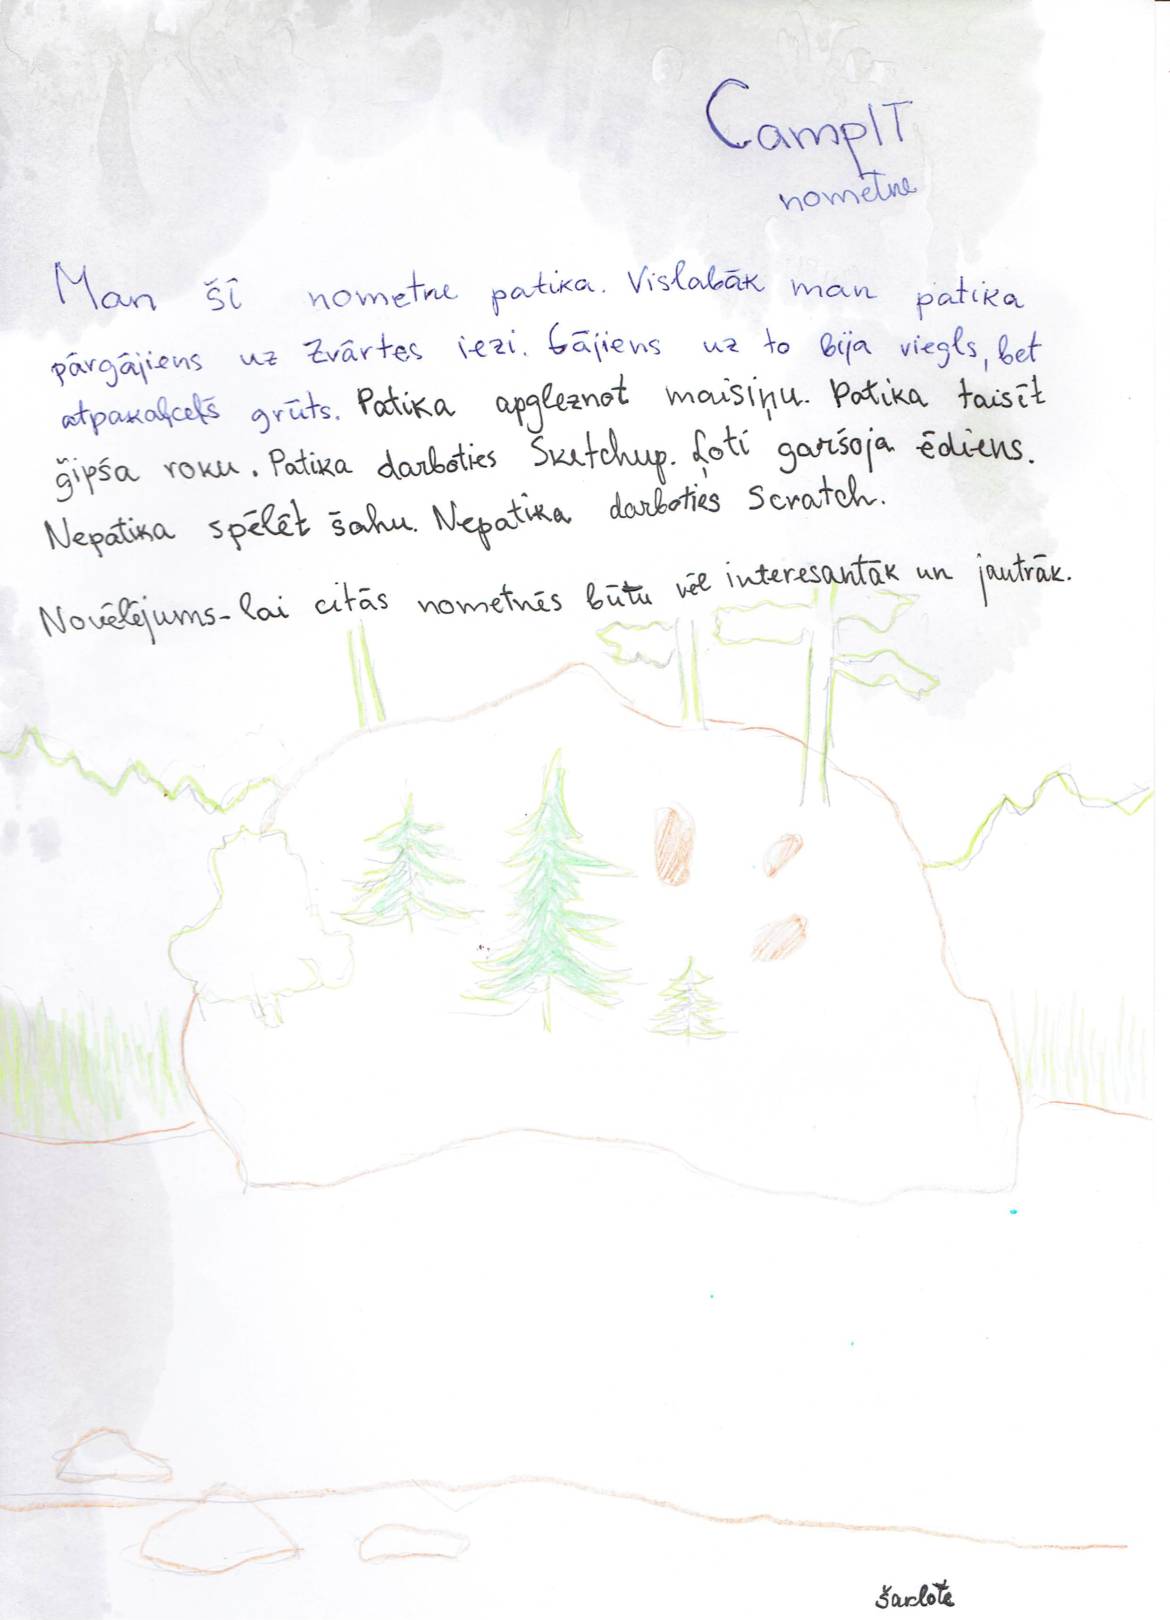 CampIT
nometne
Man šī nometne patika. Vislabāk man patika
pārgājiens uz Zvārtes iezi. Gājiens uz to bija viegls, bet
atpakaļceļš grūts. Patika apgleznot maisiņu. Patika taisīt
ģipša roku. Patika darboties Sketchup. Ļoti garšoja ēdiens.
Nepatika spēlēt šahu. Nepatika darboties Scratch.
Novēlējums - lai citās nometnēs būtu vēl interesantāk un jautrāk.
Šarlote